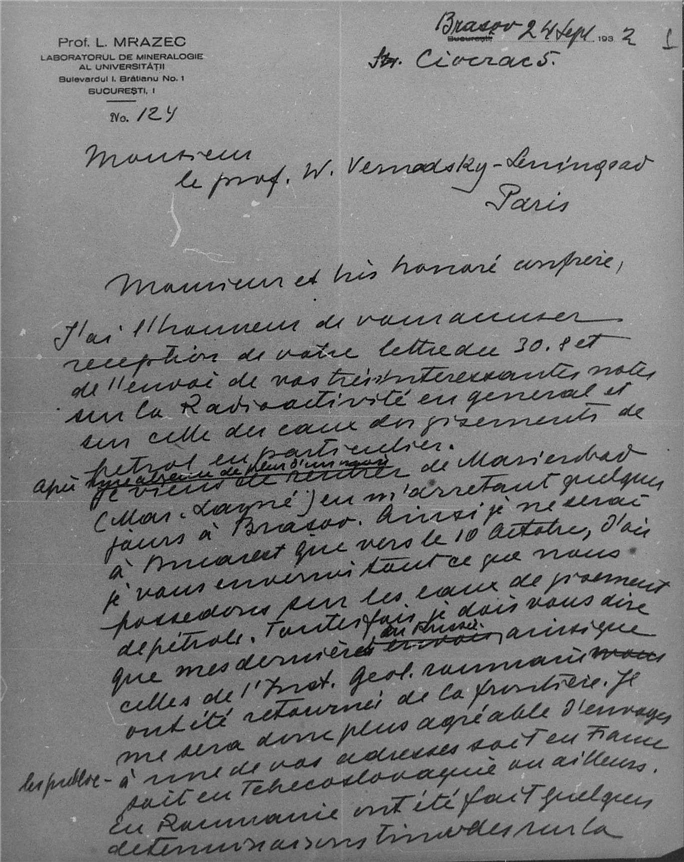 Prof. L. MRAZEC
LABORATORUL DE MINERALOGIE
AL UNIVERSITĂȚII
Bulevardul I. Brătianu No. 1
BUCUREȘTI, I
No. 124
Brasov 24 Sept 1932
București
Str. Ciocrac 5.
1
Monsieur
le prof. W. Vernadsky - Leningrad
Paris
Monsieur et très honoré confrère,
J'ai l'honneur de vous accuser
reception de votre lettre du 30.8 et
de l'envoi de vos très interessantes notes
sur la Radioactivité en general et
sur celle des eaux des gisements de
petrol en particulier.
Après une absence de plus d'un mois
je viens de rentrer de Marienbad
(Mar. Lazné) en m'arretant quelques
jours à Brasov. Ainsi je ne serai
à Bucarest que vers le 10 Octobre, d'où
je vous enverrai tout ce que nous
possedons sur les eaux de gisement
de pétrole. Toutefois je dois vous dire
que mes dernières envois en Russie, ainsi que
celles de l'Inst. Geol. roumain
ont été retournés de la frontière. Je
me sera donc plus agréable d'envoyer
les public-
à une de vos adresses soit en France
soit en Tchecoslovaquie ou ailleurs.
En Roumanie ont été fait quelques
determinaisons sur la